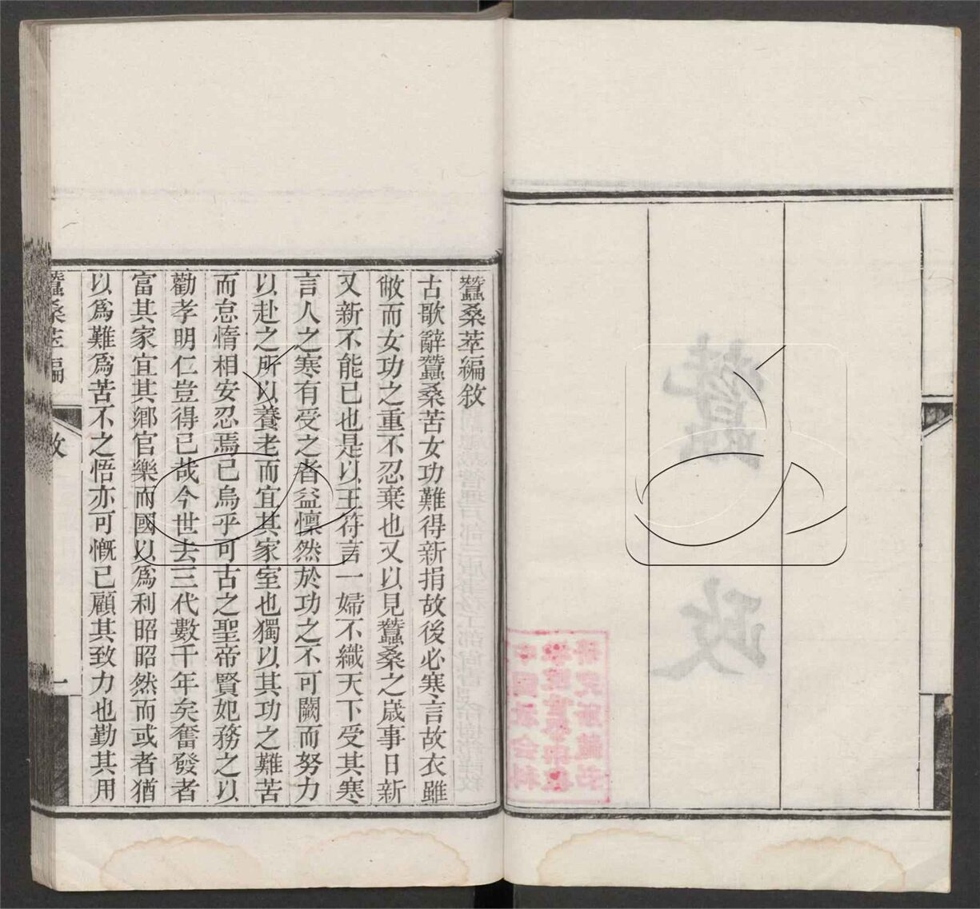 蠶桑萃編敘
古歌辭蠶桑苦女功難得新捐故後必寒言故衣雖
敝而女功之重不忍棄也又以見蠶桑之歲事日新
又新不能已也是以王符言一婦不織天下受其寒
言人之寒有受之者益懍然於功之不可闕而努力
以赴之所以養老而宜其家室也獨以其功之難苦
而怠惰相安忍焉已烏乎可古之聖帝賢妃務之以
勸孝明仁豈得已哉今世去三代數千年矣奮發者
富其家宜其鄉官樂而國以為利昭昭然而或者猶
以為難為苦不之悟亦可慨已顧其致力也勤其用
蠶桑萃編 敘 一